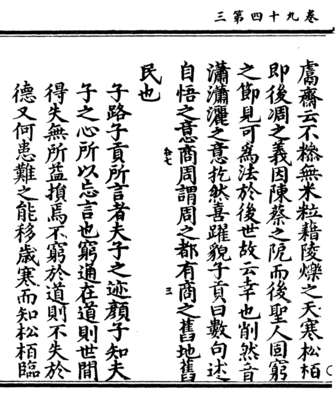 三第四十九卷
鬳齋云不糝無米粒藉陵爍之天寒松栢
即後凋之義因陳蔡之阨而後聖人固窮
之節見可爲法於後世故云幸也削然音
瀟瀟灑之意扢然喜躍貌子貢曰數句述
自悟之意商周謂周之都有商之舊地舊
民也
子路子貢所言者夫子之迹顏子知夫
子之心所以忘言也窮通在道則世間
得失無所益損焉不窮於道則不失於
德又何患難之能移歲寒而知松栢臨
三